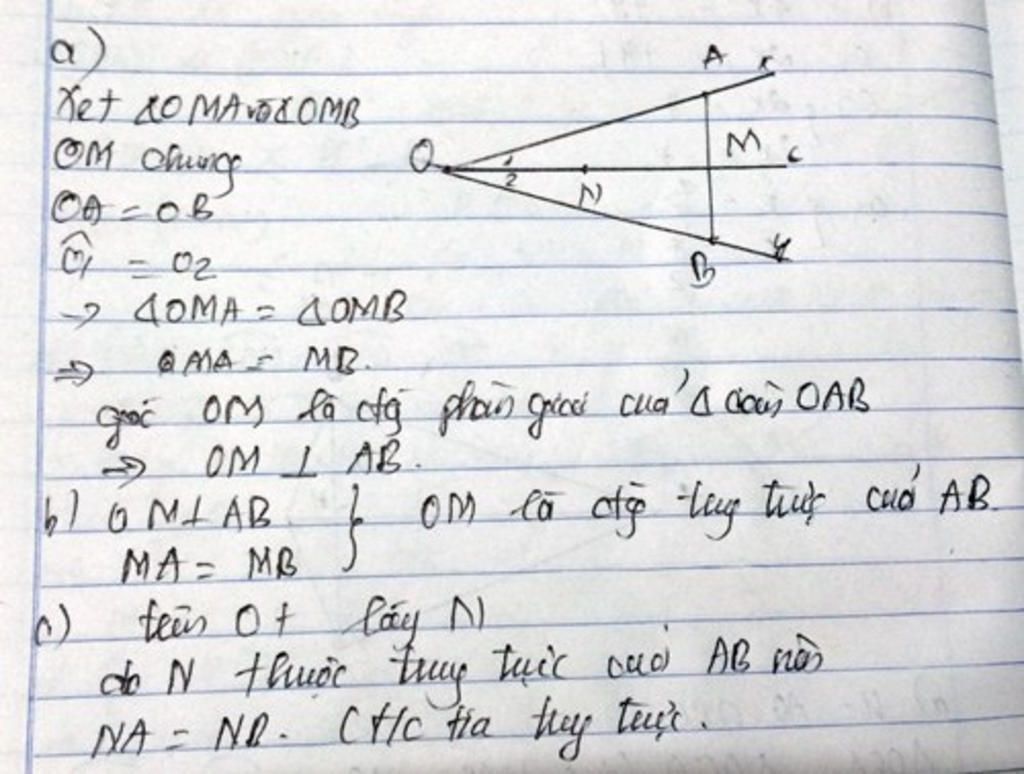 a)
Xet ΔOMA và ΔOMB
OM chung
OA = OB
Ô1 = O2
→ ΔOMA = ΔOMB
⇒ MA = MB.
góc OM là đg phân giác của Δ cân OAB
⇒ OM ⊥ AB.
b) OM ⊥ AB } OM là đg trug trực cuả AB.
MA = MB
c) trên Ot lấy N
do N thuộc trug trực cuả AB nên
NA = NB. (t/c tia trug trực.
A x
O 1 2 N M t
B y